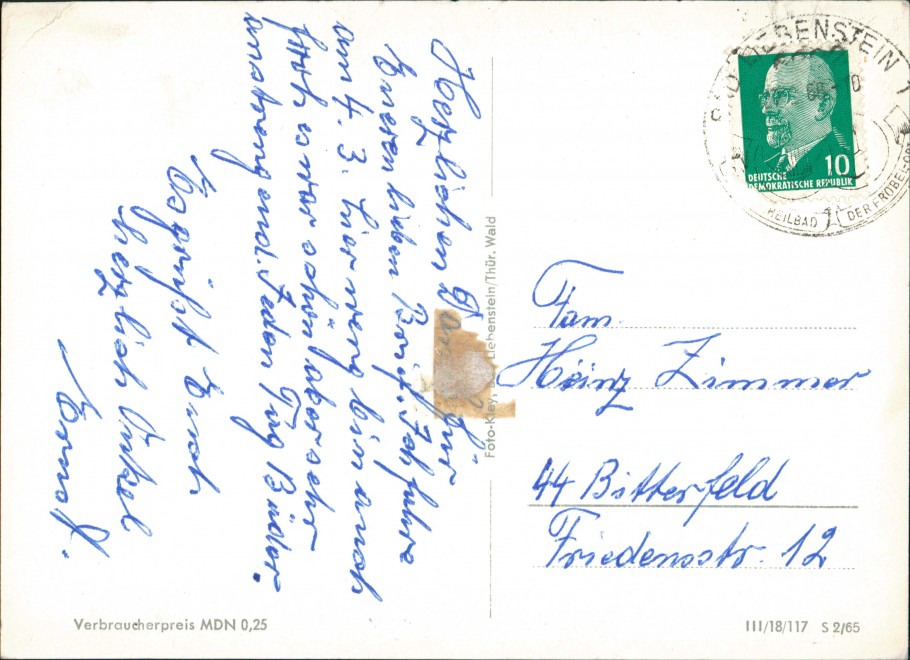 Herzlichen Dank für
Euren lieben Brief. Ich fahre
am 4. 3. hier weg bin auch
froh war schön aber sehr
anstrengend. Jeden Tag Bäder.
Es grüßt Euch
herzlich Onkel
Ernst.
Foto-Kley, Liebenstein/Thür. Wald
BAD LIEBENSTEIN 1
10
DEUTSCHE
DEMOKRATISCHE REPUBLIK
HEILBAD
DER FRÖBELORT
Fam.
Heinz Zimmer
44 Bitterfeld
Friedensstr. 12
Verbraucherpreis MDN 0,25
III/18/117 S 2/65